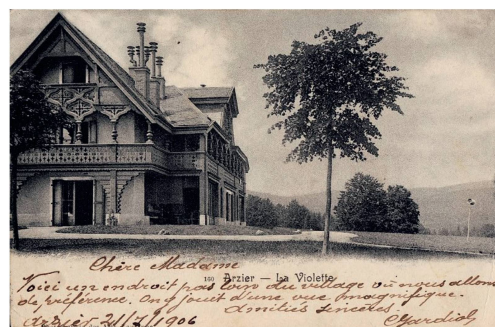 Chère Madame
160 Arzier — La Violette
Voici un endroit pas loin du village où nous allons
de préférence. On y jouit d'une vue magnifique.
Amitiés sincères.
Arzier 21/7/1906